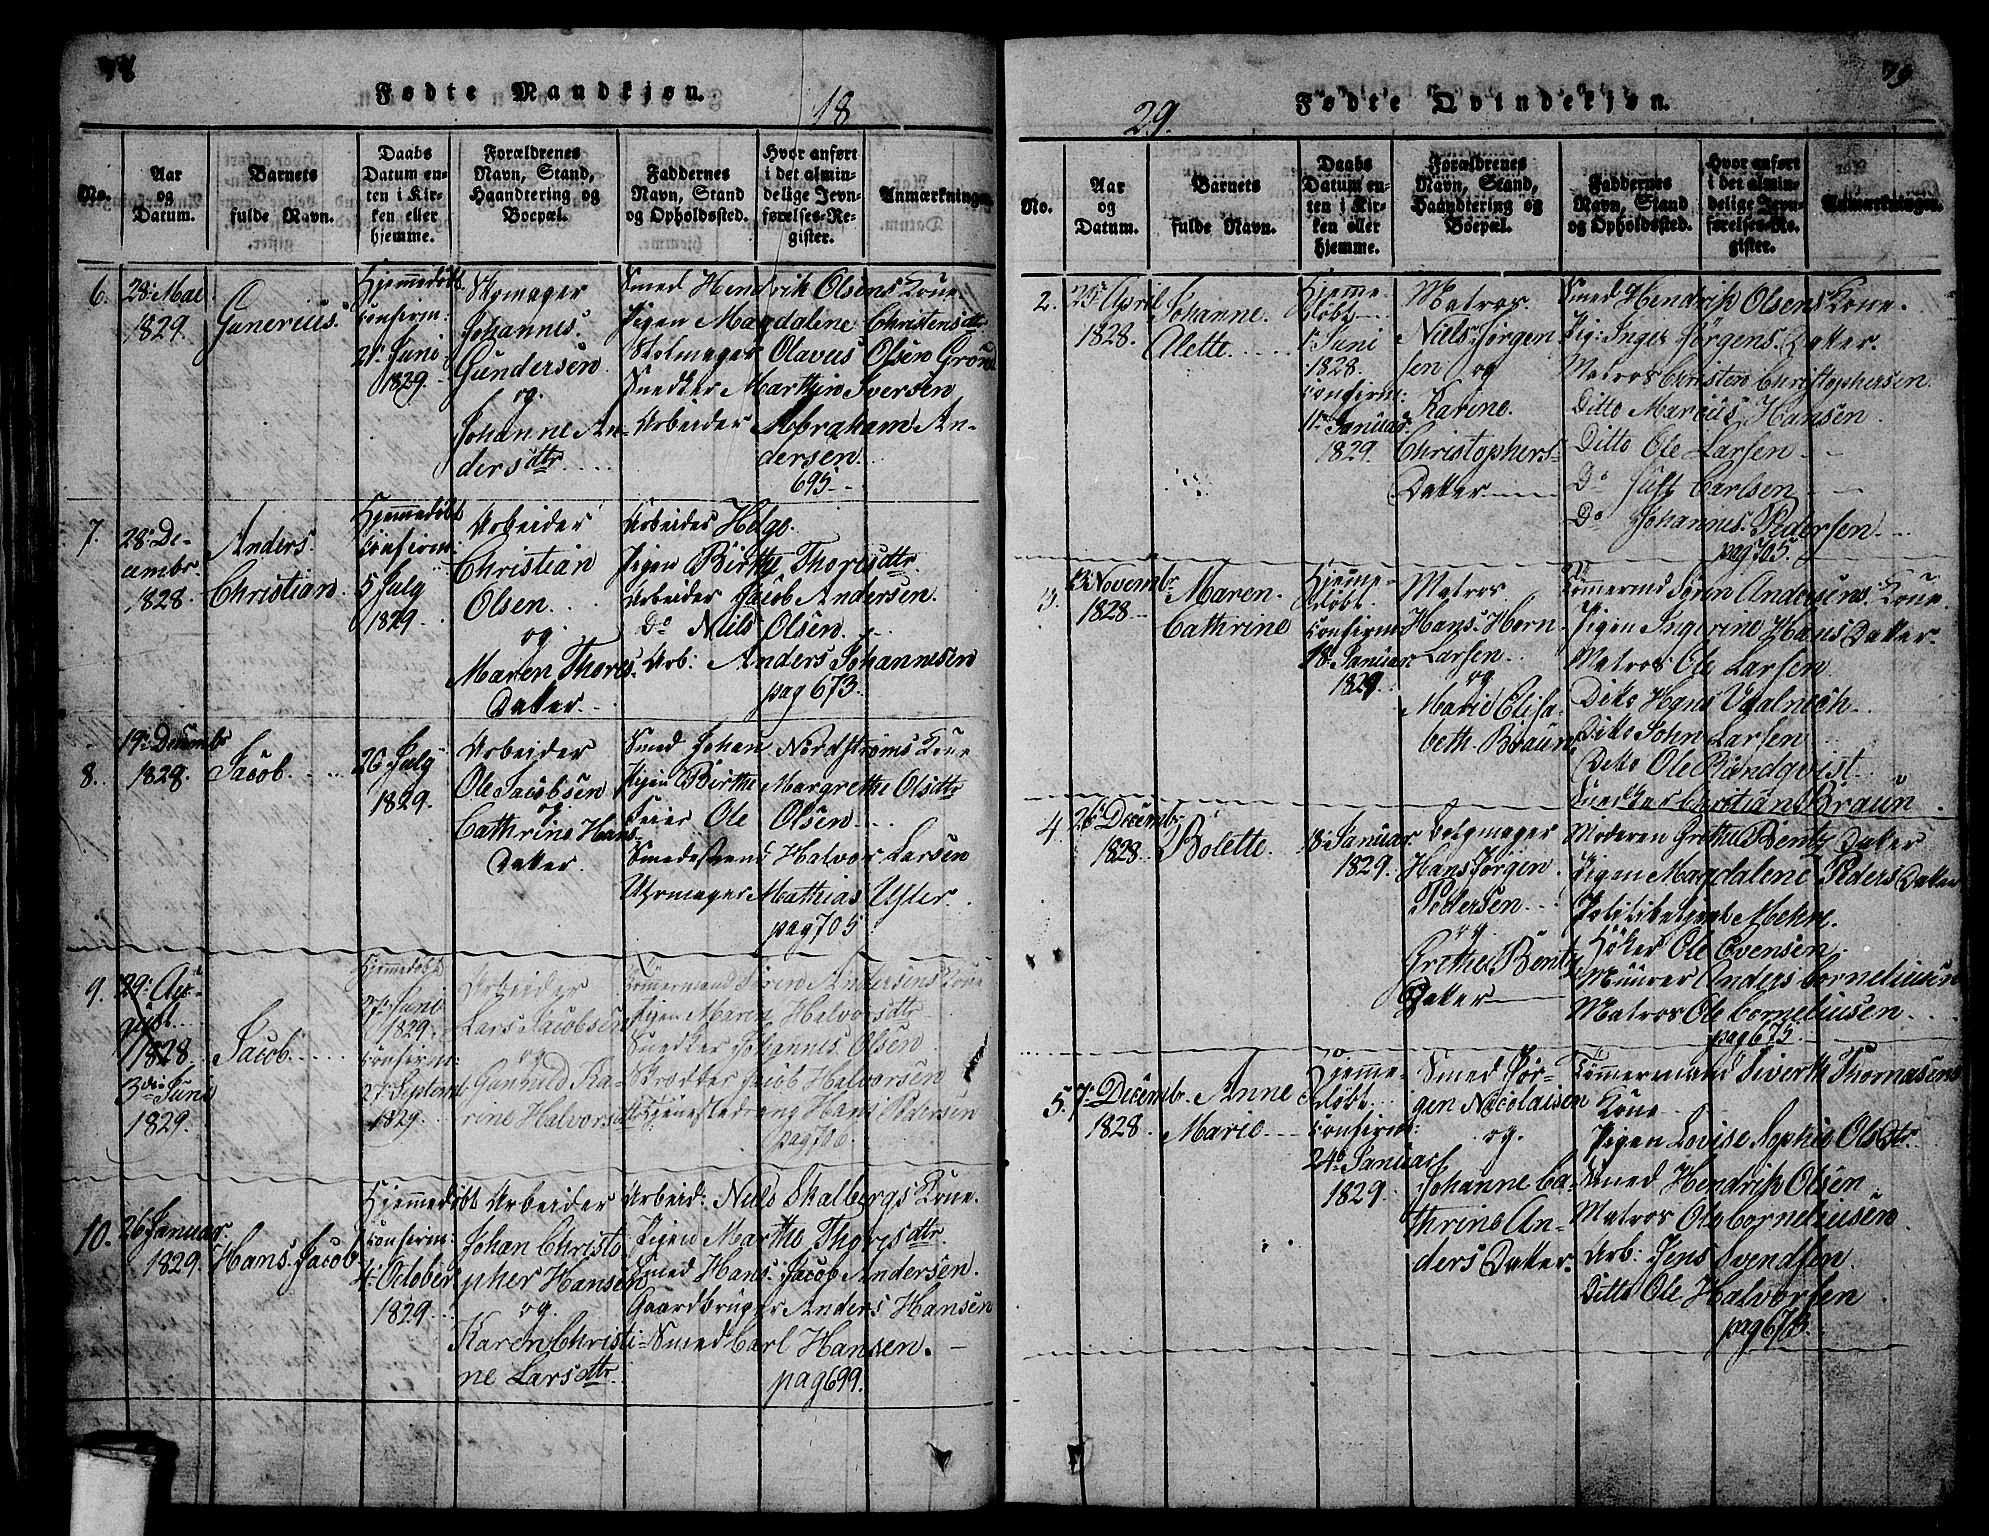 78
Fødte Mandkjøn.
18
No.
Aar
og
Datum.
Barnets
fulde Navn.
Daabs
Datum en-
ten i Kir-
ken eller
hjemme.
Forældrenes
Navn, Stand,
Haandtering og
Boepæl.
Faddernes
Navn, Stand
og Opholdssted.
Hvor anført
i det almin-
delige Jevn-
førelses-Re-
gister.
Anmærkninger.
6.
28. Mai
1829.
Gunerius.
Hjemmedøbt
Confirm:
21. Juni
1829.
Skomager
Johannes
Gundersen
og
Johanne An-
dersdtr.
Smed Hendrik Olsens Kone.
Pigen Magdalene Christensdtr
Stolmager Olavus Olsen
Snedker Marthin Iversen
Arbeider Abraham An-
dersen.
695
7.
28. De-
cembr.
1828.
Anders
Christian.
Hjemmedøbt
Confirm:
5 July
1829
Arbeider
Christian
Olsen.
og
Maren Thores
Datter.
Arbeider Helge
Pigen Birthe Thoresdtr.
Arbeider Jacob Andersen.
Do Niels Olsen.
Arb: Anders Johannesen
pag 673.
8.
19. Decembr
1828.
Jacob.
26 July
1829.
Arbeider
Ole Jacobsen
og
Cathrine Hans
Datter.
Smed Johan Nordstrøms Kone
Pigen Birthe Margrethe Olsdtr
Feier Ole Olsen.
Smedesvend Halvor Larsen
Uhrmager Mathias
pag 705
9.
29. Au-
gust
1828.
3die Juni
1829.
Jacob.
Hjemmedøbt
27. Juni
1829.
Confirm:
27 Septembr
1829.
Arbeider
Lars Jacobsen
og
Gunhild Ka-
rine Halvorsd
Tømermand Søren Andersens Kone
Pigen Maren Halvorsdtr
Snedker Johannes Olsen
Jacob Halvorsen
Hans Pedersen
pag 706
10.
26 Januar.
1829.
Hans Jacob
Hjemmedøbt
Confirm:
4. October
1829.
Arbeider
Johan Christo
pher Hansen
og
Karen Christi-
ne Larsdtr.
Arbeid: Niels Skalbergs Kone.
Pigen Marthe Thorsdtr.
Smed Hans Jacob Andersen.
Gaardbruger Anders Hansen
Smed Carl Hansen.
pag 699.
79
29.
Fødte Qvindekjøn.
No.
Aar
og
Datum.
Barnets
fulde Navn.
Daabs
Datum en-
ten i Kir-
ken eller
hjemme.
Forældrenes
Navn, Stand,
Haandtering og
Boepæl.
Faddernes
Navn, Stand
og Opholdssted.
Hvor anført
i det almin-
delige Jevn-
førelses-Re-
gister.
Anmærkninger.
2.
25. April
1828.
Johanne
Alette.
Hjemme-
døbt
1. Juni
1828.
Confirm:
11. Januar
1829.
Matros
Niels Jørgen
sen og
Karine
Christophers-
Datter
Smed Hendrik Olsens Kone.
Pig: Inger Jørgens Datter.
Matros Christen Christophersen.
Ditto Marius Hansen
Ditto Ole Larsen
Do Just Carlsen
Do Johannes Pedersen
pag 705.
3.
13. Novembr
1828
Maren
Cathrine
Hjemme-
døbt.
Confirm
18. Januar
1829.
Matros
Hans Horn
Larsen
og
Marie Elisa-
beth Braun
Tømermd Søren Andersens Kone.
Pigen Ingerine Hans Datter.
Matros Ole Larsen
Ditto Hans
Ditto John Larsen
Ditto Ole Rundqvist
Snedker Christian Braun
4.
26. Decembr
1828
Bolette.
18 Januar
1829.
Hans Jørgen
Pedersen
og
Grethe Bentz
Datter
Moderen Grethe Bentz Datter
Pigen Magdalene Peders Datter
Politibetjent
Høker Ole Evensen
Muurer Anders Corneliusen
Matros Ole Corneliusen
pag 675
5.
7. Decembr.
1828
Anne
Marie
Hjemme-
døbt
Confirm:
24. Januar
1829
Smed Jør-
gen Nicolaisen
og
Johanne Ca-
thrine An-
ders Datter.
Tømmermand Siverth Thomasens
Kone
Pigen Lovise Sophie Olsdtr.
Smed Hendrik Olsen
Matros Ole Corneliusen
Arb: Jens Svendsen.
Ditto Ole Halvorsen
pag 673.